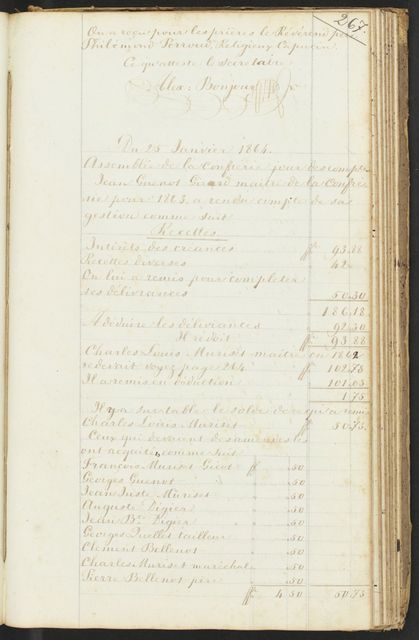 267.
On a reçu pour les prières le Révérend père
Philomène Perroud, Religieux Capucin.
Ce qu'atteste le Secrétaire
Alex: Bonjour
Du 25 Janvier 1864.
Assemblée de la Confrérie pour des comptes
Jean Guenot Girard maitre de la Confré
rie pour 1863 a rendu compte de sa
gestion comme suit
Recettes
Intérêts des créances ff 93.88
Recettes diverses " 42
On lui a remis pour completer
ses délivrances 50.30
186.18
A déduire les délivrances 92.30
Il redoit ff 93.88
Charles Louis Muriset maitre en 1862
redevait voyez page 264 ff 102.75
Il a remis en déduction 101.05
1.75
Il y a sur table le solde de ce qu'a remis
Charles Louis Muriset ff 50.75.
Ceux qui devaient des amendes les
ont acquité, comme suit
François Muriset Gicot ff .50
Georges Guenot " .50
Jean Juste Muriset " .50
Auguste Digier " .50
Jean Bte Digier " .50
Georges Quellet tailleur " .50
Clément Bellenot " .50
Charles Muriset maréchal " .50
Pierre Bellenot père " .50
ff 4 50 50.75